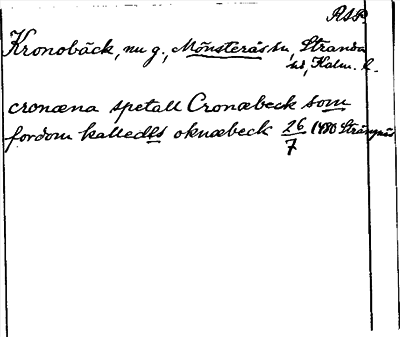 RAP.
Kronobäck, nu g., Mönsterås sn, Stranda
hd, Kalm. l.
cronæna spetall Cronæbeck som
fordom kalledes oknæbeck 26/7 1480 Strängnäs